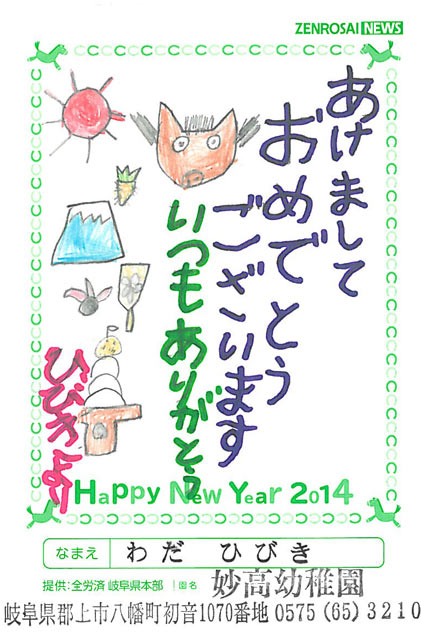 ZENROSAI NEWS
あけまして
おめでとう
ございます
いつもありがとう
ひびきより
Happy New Year 2014
なまえ わだ ひびき
提供:全労済 岐阜県本部 園名 妙高幼稚園
岐阜県郡上市八幡町初音1070番地 0575 (65) 3210